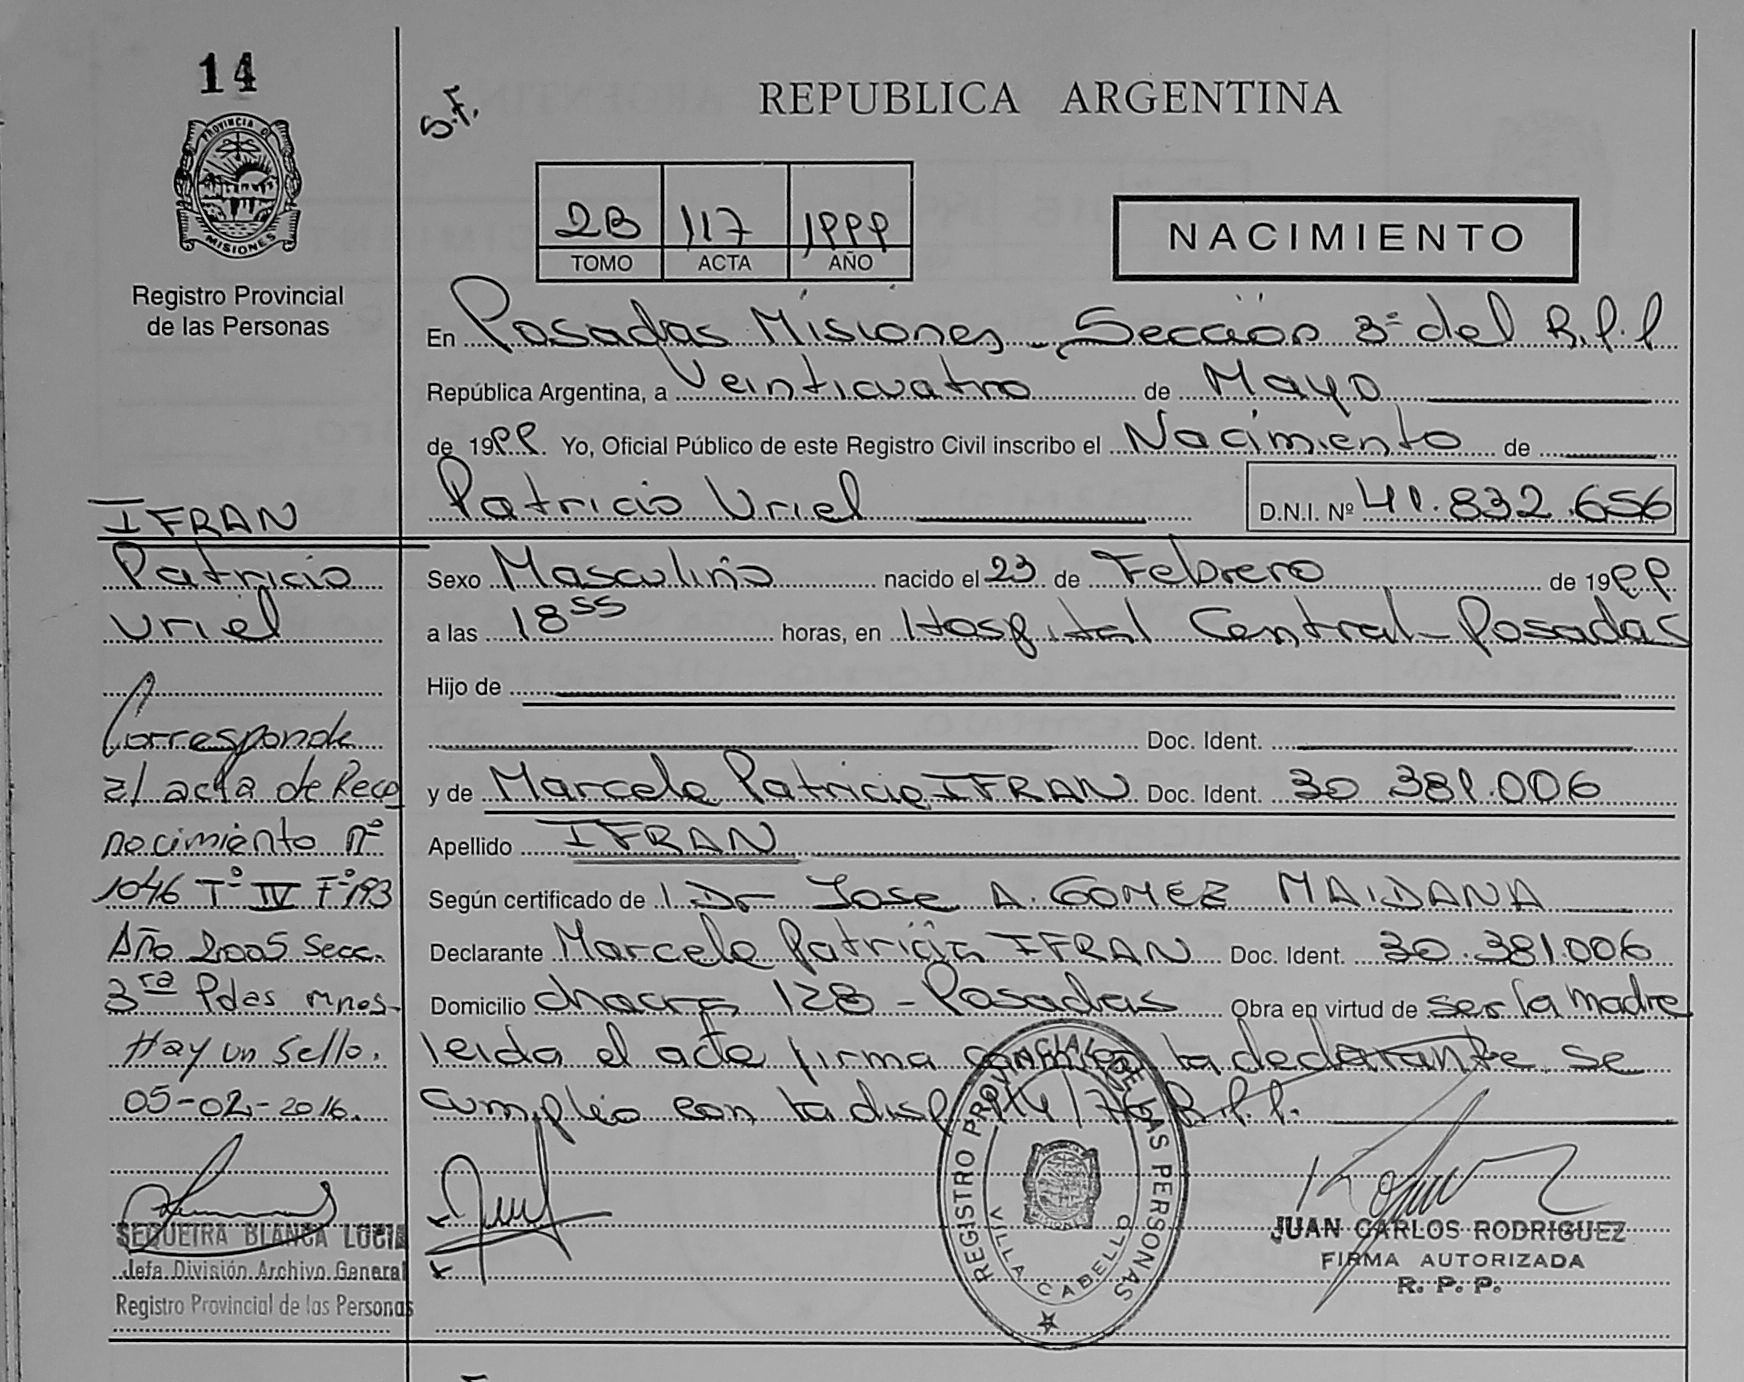 14
PROVINCIA DE
MISIONES
Registro Provincial
de las Personas
S.F.
REPUBLICA ARGENTINA
2B 117 1999
TOMO ACTA AÑO
NACIMIENTO
En Posadas Misiones - Sección 3º del R.P.P
República Argentina, a Veinticuatro de Mayo
de 1999. Yo, Oficial Público de este Registro Civil inscribo el Nacimiento de
Patricio Uriel D.N.I. Nº 41.832.656
Sexo Masculino nacido el 23 de Febrero de 1999
a las 18 55 horas, en Hospital Central - Posadas
Hijo de
Doc. Ident.
y de Marcela Patricia IFRAN Doc. Ident. 30 381.006
Apellido IFRAN
Según certificado de Dr Jose A. GOMEZ MAIDANA
Declarante Marcela Patricia IFRAN Doc. Ident. 30.381.006
Domicilio chacra 128 - Posadas Obra en virtud de ser la madre
leida el acta firma la declarante se
cumplio con la disp 114/76 R.P.P.
IFRAN
Patricio
Uriel
Corresponde
al acta de Reco
nocimiento nº
1046 Tº IV Fº 193
Año 2005 Secc.
3ra Pdas mnes-
Hay un sello.
05-02-2016.
SEQUEIRA BLANCA LUCIA
Jefa División Archivo General
Registro Provincial de las Personas
REGISTRO PROVINCIAL DE LAS PERSONAS
VILLA CABELLO
JUAN CARLOS RODRIGUEZ
FIRMA AUTORIZADA
R. P. P.